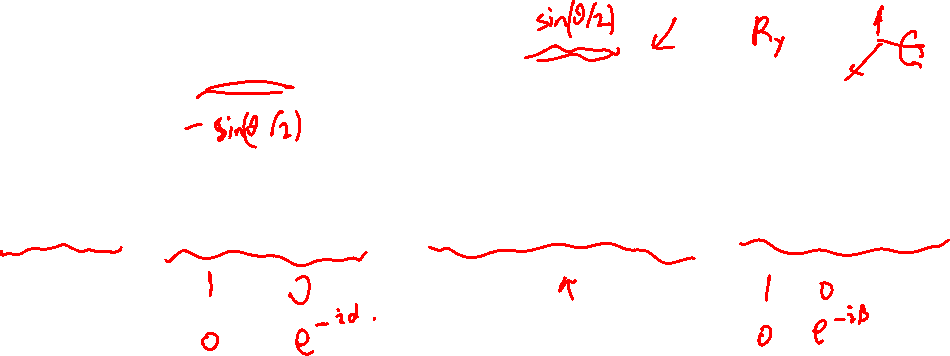 sin(θ/2)
R_y
- sin(θ/2)
1 0
0 e^{-iα}.
1 0
0 e^{-iβ}